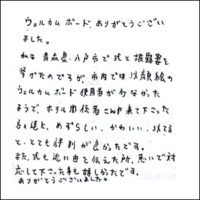 ウェルカムボード、ありがとうござい
ました。
私は青森県八戸市で式と披露宴を
挙げたのですが、市内では似顔絵の
ウェルカムボード使用者が少なかった
ようで、ホテル関係者さんや来て下さった
方々達に、めずらしい、かわいい、似てる
と、とても評判が良かったです。
また、式も近い内と伝えた所、急いで対
応して下さった事も嬉しかったです。
ありがとうございました。